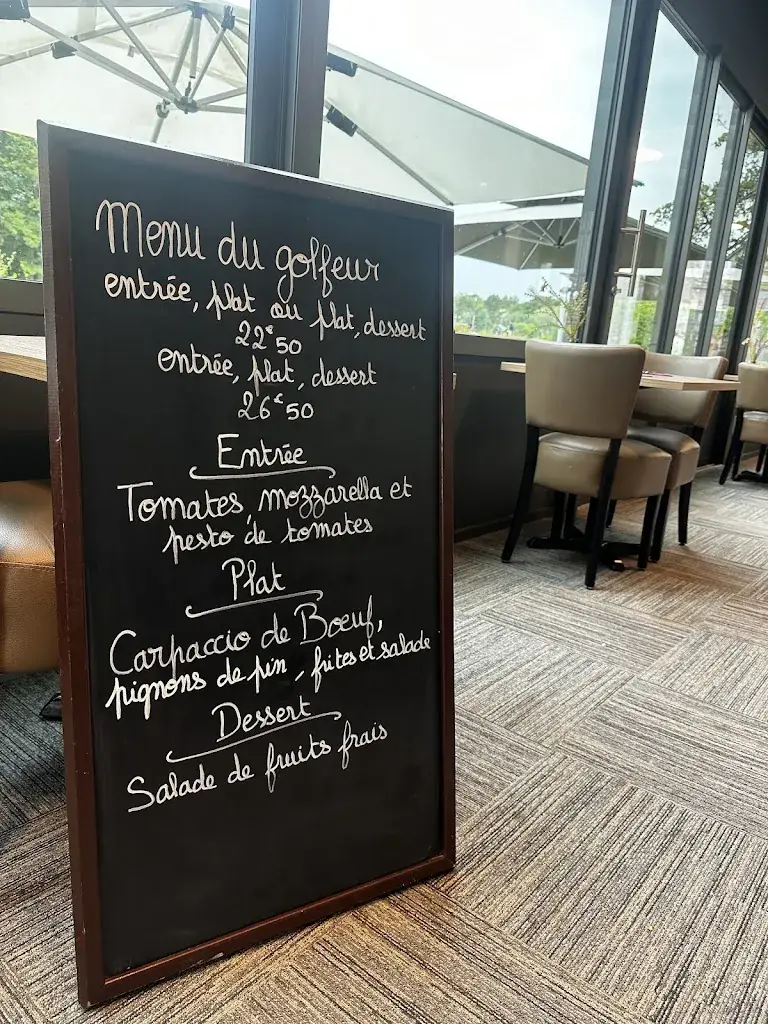 Menu du golfeur
entrée, plat ou plat, dessert
22€50
entrée, plat, dessert
26€50
Entrée
Tomates, mozzarella et
pesto de tomates
Plat
Carpaccio de Boeuf,
pignons de pin, frites et salade
Dessert
Salade de fruits frais